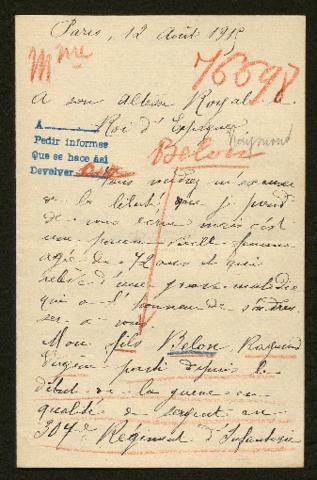 Paris, 12 Août 191
Mme
76698
A son Altesse Royale le
Roi d'Espagne
A
Pedir informes
Que se hace así
Devolver
Belon Raymond
Vous voudrez m'excuser
de la liberté que je prend
de vous écrire mais c'est
une pauvre vieille femme
agée de 72 ans et qui
relève d'une grave maladie
qui a l'honneur de s'adres
ser a vous
Mon fils Belon, Raymond
Eugène parti depuis le
début de la guerre en
qualité de sergent au
304e Régiment d'Infanterie